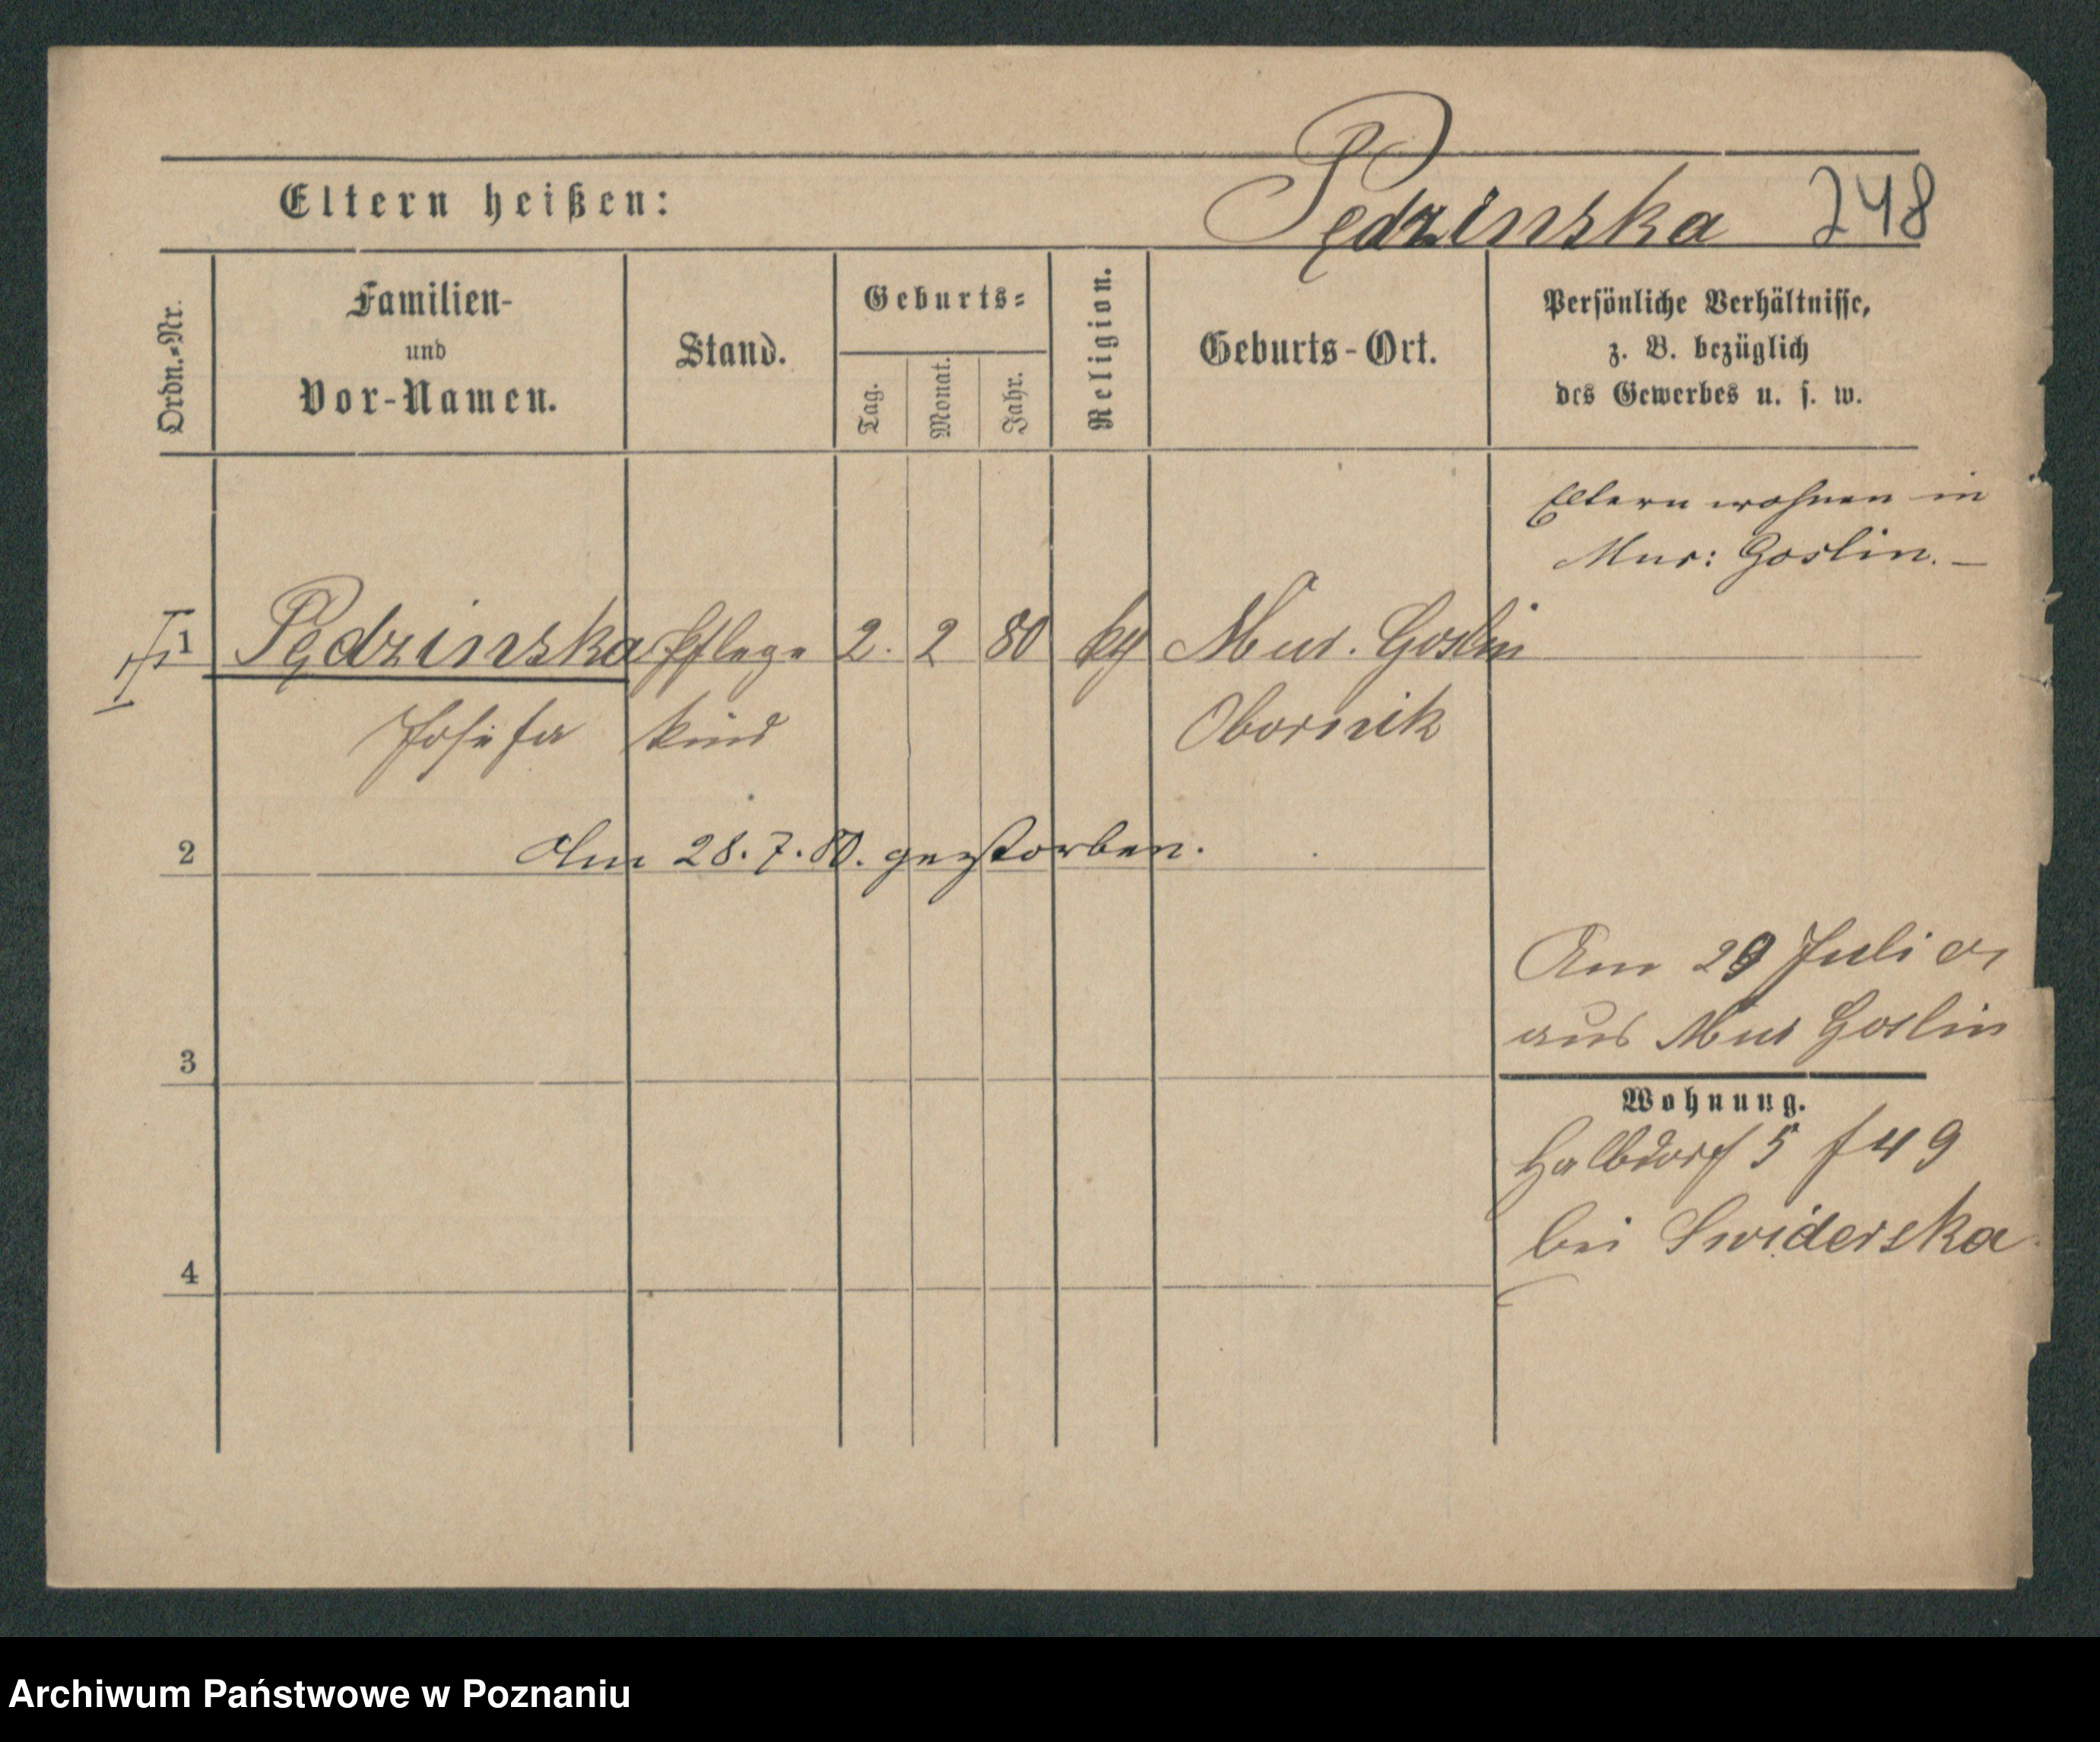 Pędzinska 248
Eltern heißen:
Ordn.-Nr.
Familien-
und
Vor-Namen.
Stand.
Geburts-
Tag.
Monat.
Jahr.
Religion.
Geburts-Ort.
Persönliche Verhältnisse,
z. B. bezüglich
des Gewerbes u. s. w.
Eltern wohnen in
Mur: Goslin. —
1 Pędzinska Pflege 2. 2 80 Mur. Goslin
Josefa kind Obornik
2 Am 28.7.80. gestorben.
Am 29 Juli
aus Mur Goslin
3
Wohnung.
Halbdorf 5 f 49
bei Swiderska
4
Archiwum Państwowe w Poznaniu